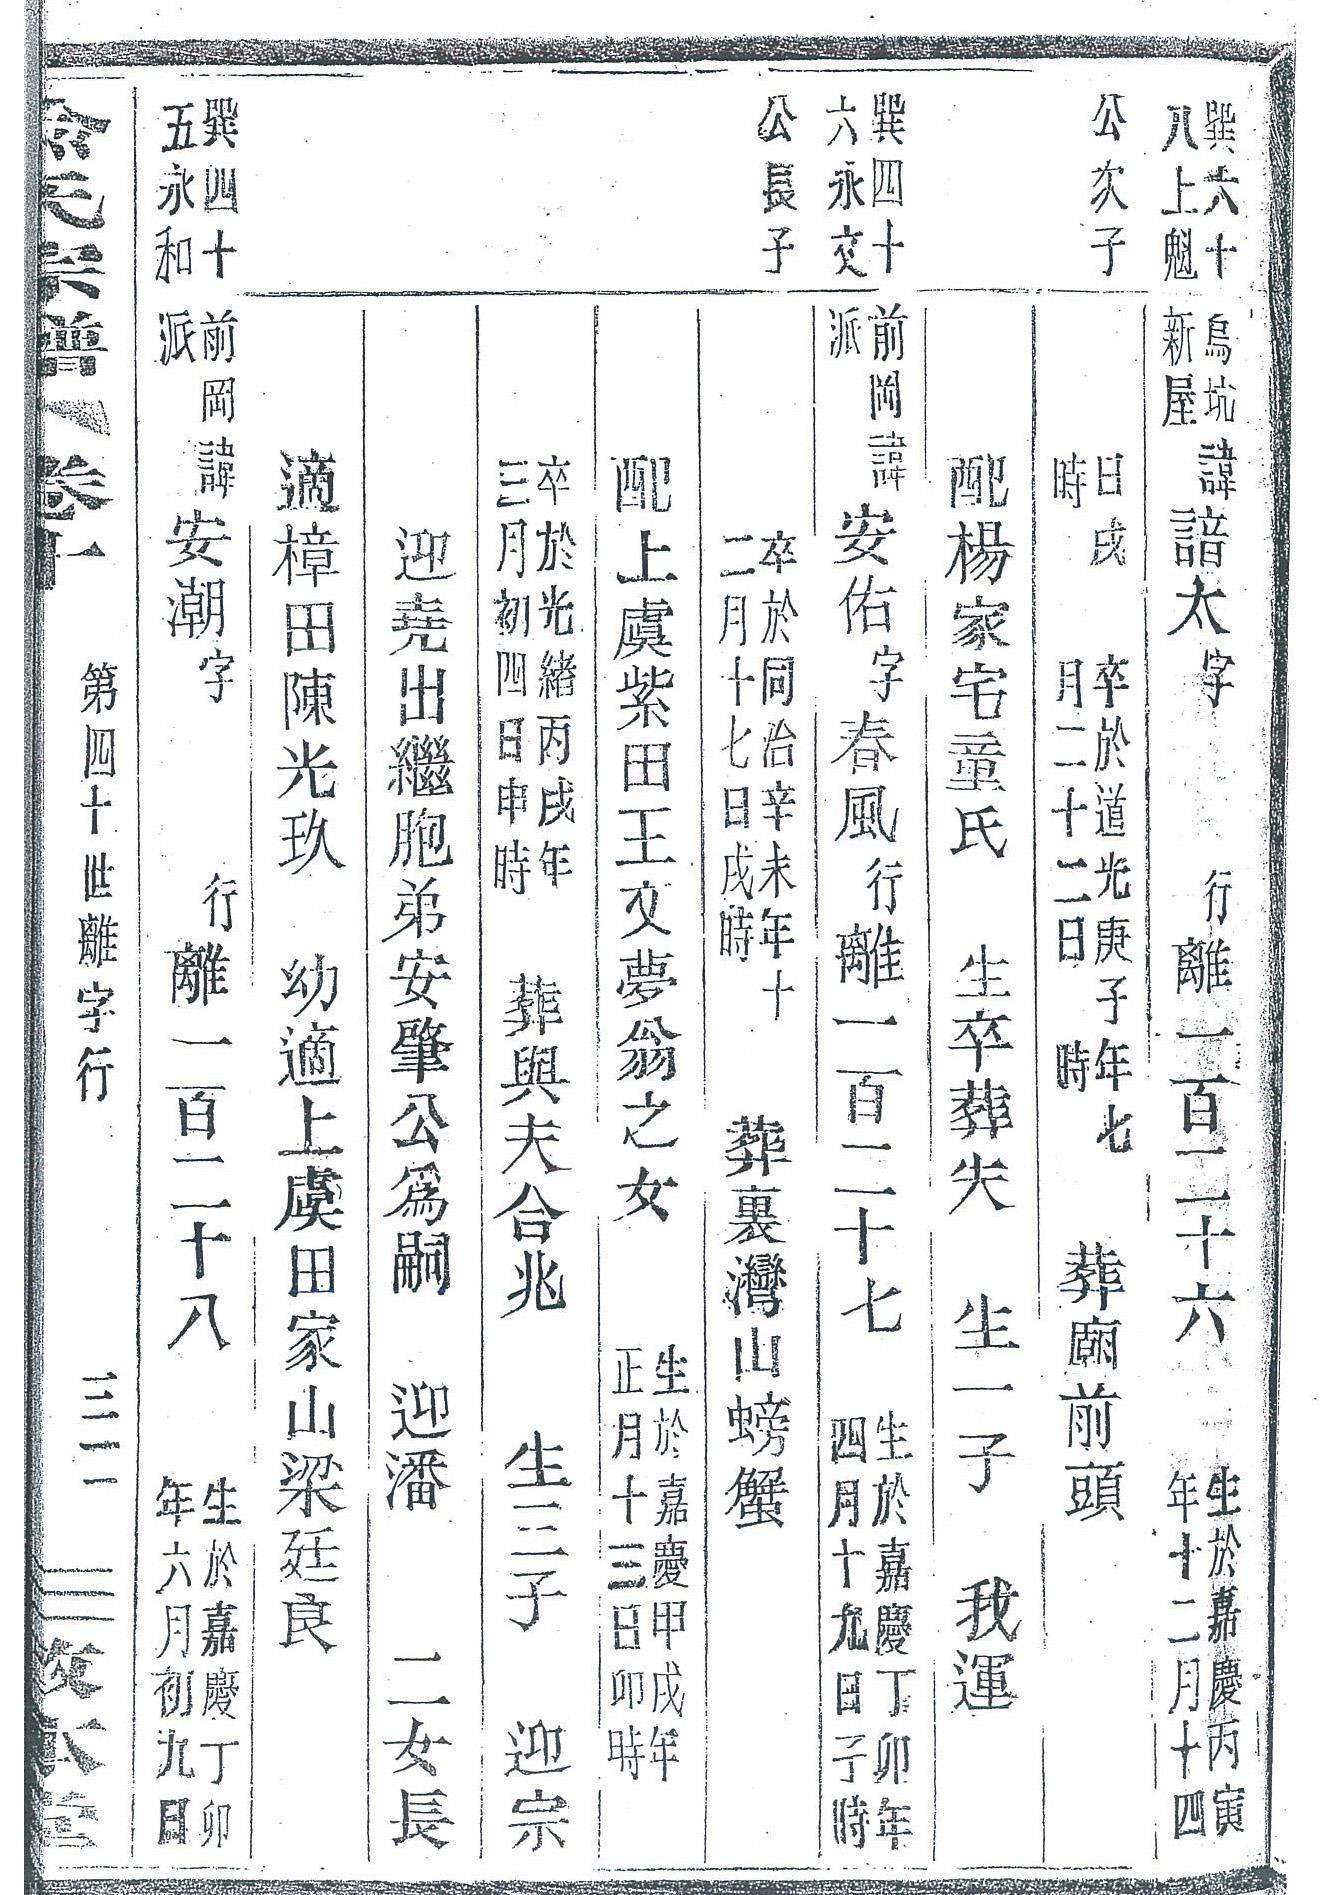 巽六十
八上魁
烏坑
新屋
諱諳太字 行離一百二十六
生於嘉慶丙寅
年十二月十四
公次子
日戌
時
卒於道光庚子年七
月二十二日 時
葬廟前頭
配楊家宅童氏 生卒葬失 生一子 我運
巽四十
六永交
前岡
派
諱安佑字春風行離一百二十七
生於嘉慶丁卯年
四月十九日子時
公長子
卒於同治辛未年十
二月十七日戌時
葬裏灣山螃蟹
配上虞紫田王文夢翁之女
生於嘉慶甲戌年
正月十三日卯時
卒於光緒丙戌年
三月初四日申時
葬與夫合兆 生三子 迎宗
迎堯出繼胞弟安肇公為嗣 迎潘 二女長
適樟田陳光玖 幼適上虞田家山梁廷良
巽四十
五永和
前岡
派
諱安潮字 行離一百二十八
生於嘉慶丁卯
年六月初九日
氏宗譜 卷十
第四十世離字行
三二
敦本堂